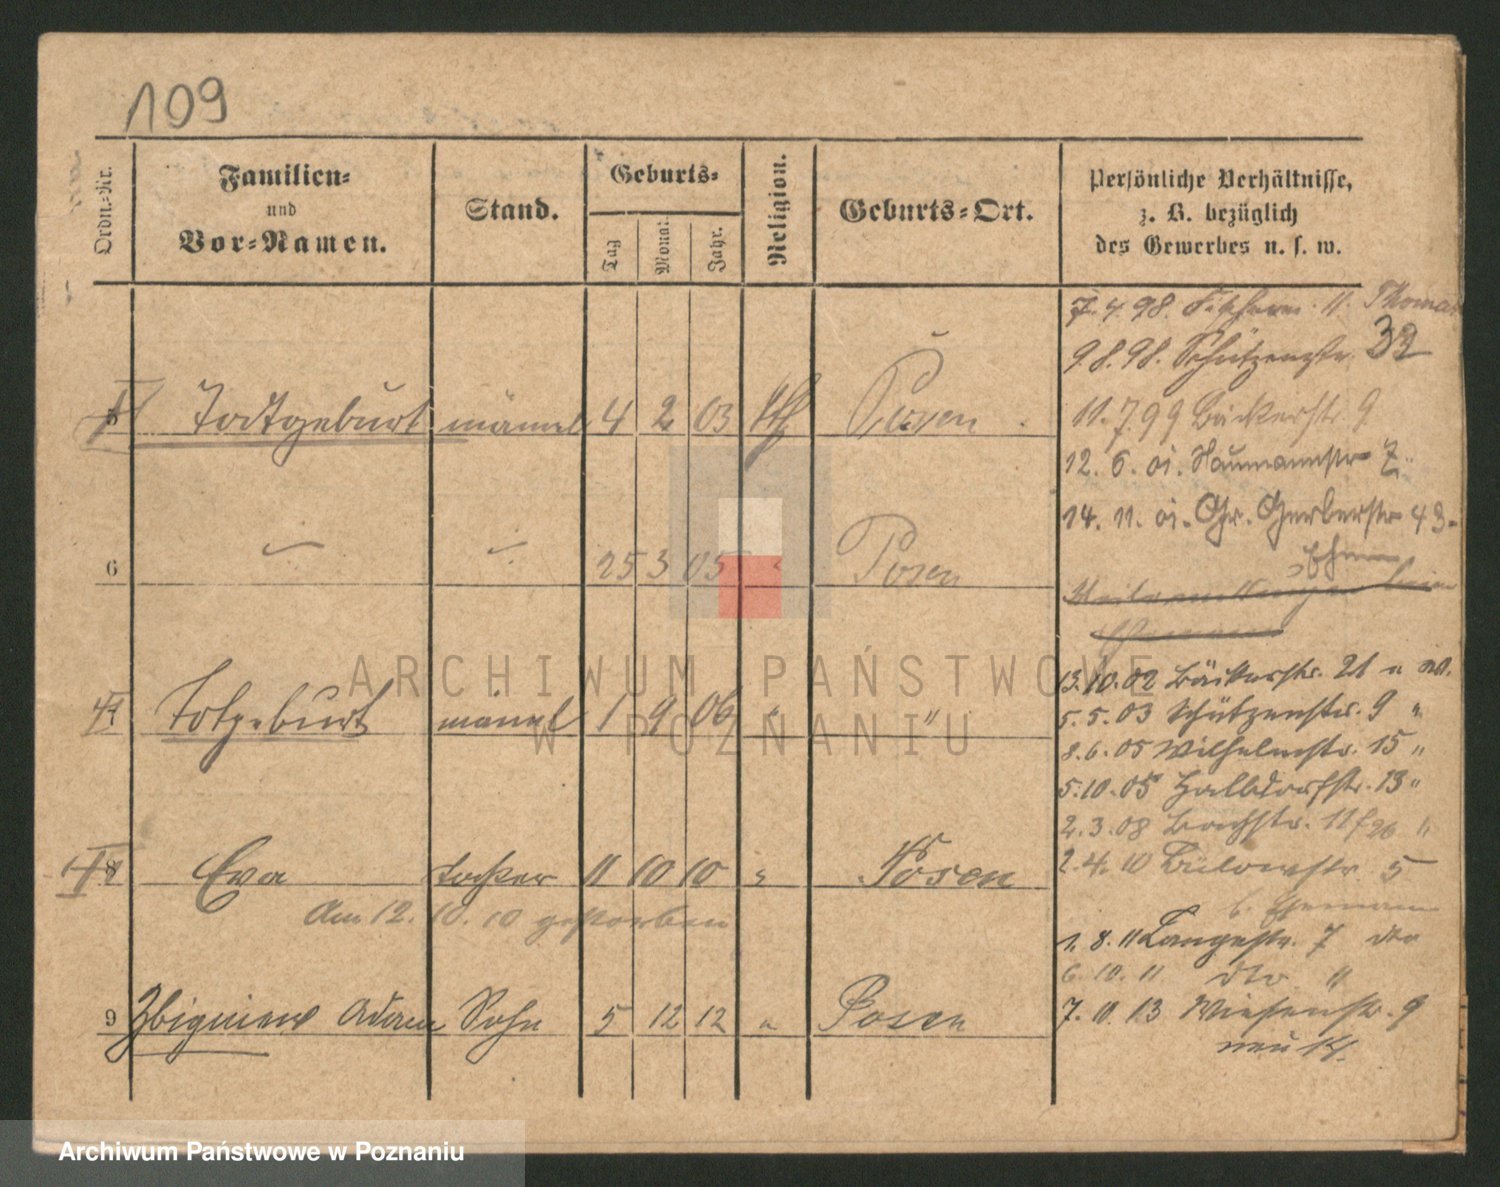 109
Ordn.-Nr.
Familien-
und
Vor-Namen.
Stand.
Geburts-
Tag
Monat
Jahr.
Religion.
Geburts-Ort.
Persönliche Verhältnisse,
z. B. bezüglich
des Gewerbes u. s. w.
7. 4. 98. 11. Thomas
9. 8. 98. Schützenstr. 32
5 Todtgeburt männl 4 2 03 kth Posen
11. 7 99 Bäckerstr. 9
12. 6. 01. Naumannstr 7
14. 11. 01. Gr. Gerberstr 43
6 25 3 05 " Posen
Ehem
13. 10. 02 Bäckerstr. 21
Totgeburt männl 1 9 06 " "
5. 5. 03 Schützenstr. 9 "
8. 6. 05 Wilhelmstr. 15 "
5. 10. 05 Halbdorfstr. 13 "
2. 3. 08 Bachstr. "
8 Eva tochter 11 10 10 " Posen
2. 4. 10 Bülowstr. 5
Am 12. 10. 10 gestorben
b. Ehemann
1. 8. 11 Langestr. 7 dto
6. 10. 11 dto "
9 Zbigniew Adam Sohn 5 12 12 " Posen
7. 10. 13 Wiesenstr. 9
neu 14.
ARCHIWUM PAŃSTWOWE
W POZNANIU
Archiwum Państwowe w Poznaniu